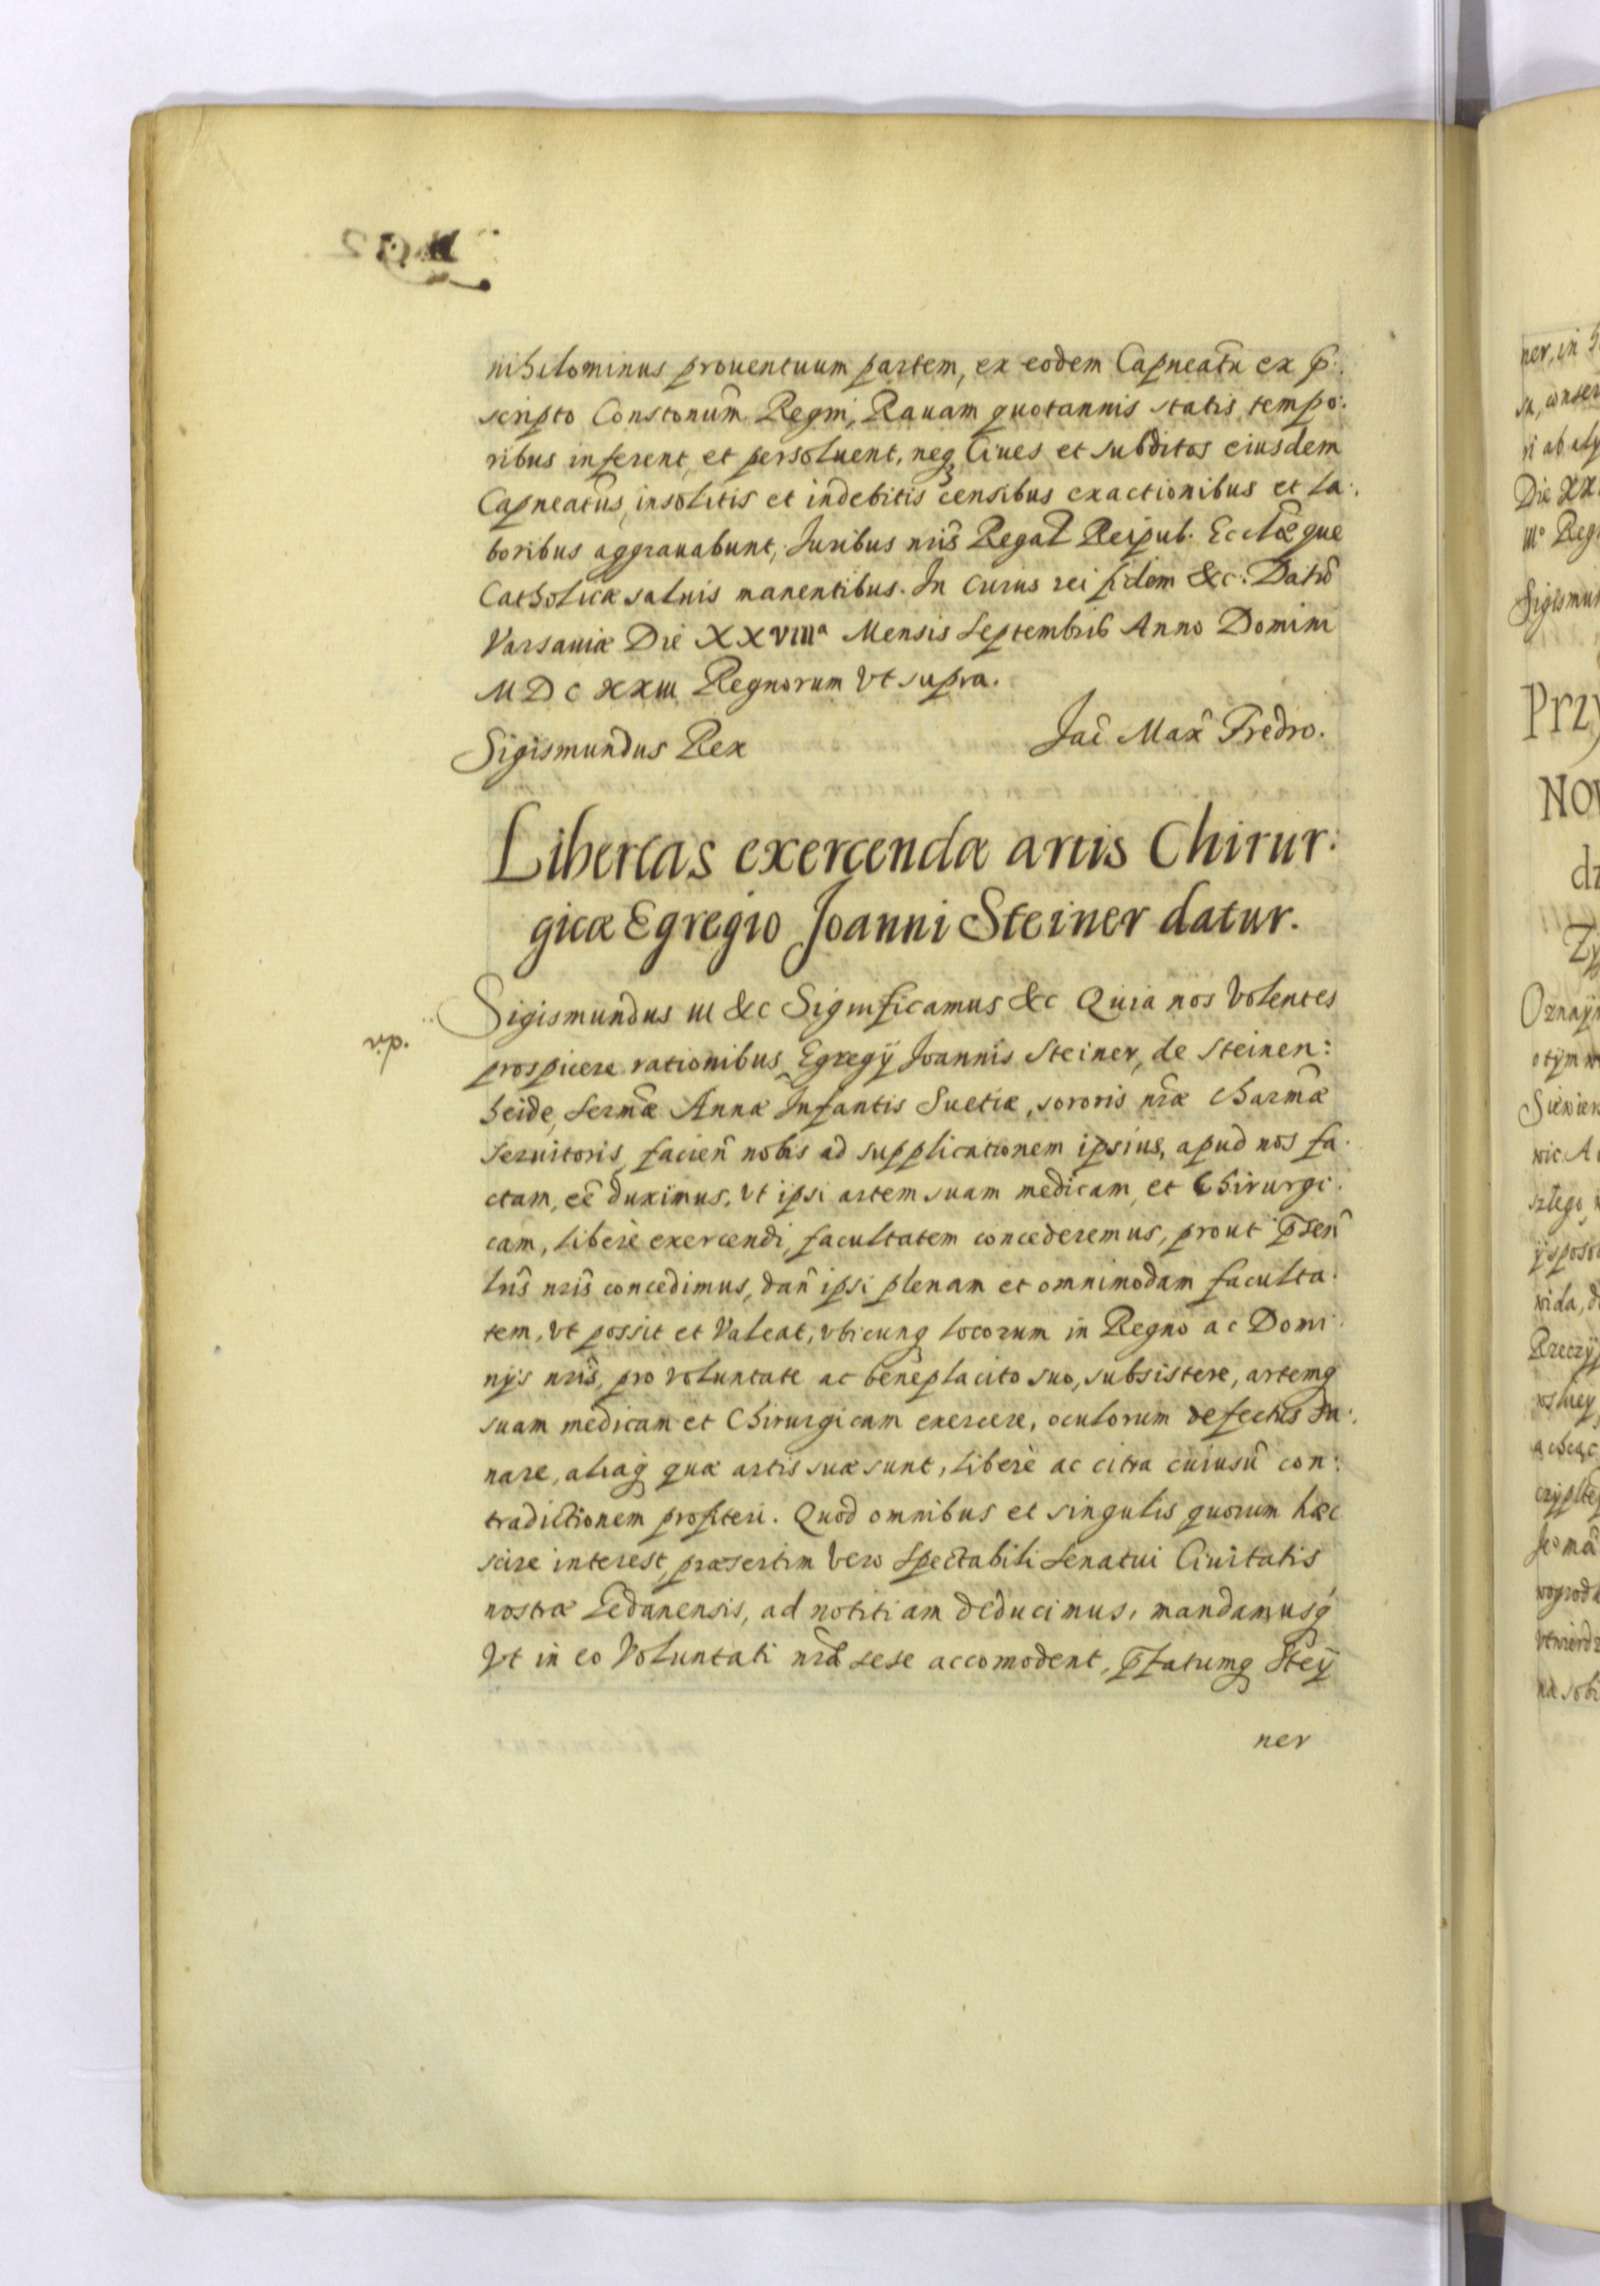 nihilominus prouentuum partem, ex eodem Capneatu ex p̄:
scripto Constonum̃ Regni, Rauam quotannis statis tempo:
ribus inferent, et persoluent, neq Ciues et subditos eiusdem
Capneatus̃, insolitis et indebitis censibus exactionibus et la:
boribus aggrauabunt, Iuribus nris̃ Regal Reipub. Ecclæ̃que
Catholicæ saluis manentibus. In cuius rei fidem &c: Datũ
Varsauiæ Die XXVIIIa Mensis Septembris Anno Domini
MDCXXIII Regnorum Vt supra.
Sigismundus Rex
Jac̃ Max̃ Fredro.
Libertas exercendæ artis Chirur:
gicæ Egregio Joanni Steiner datur.
Sigismundus III &c Significamus &c Quia nos Volentes
prospicere rationibus Egregÿ Joannis Steiner, de Steinen:
heide, Sermæ̃ Annæ Infantis Suetiæ, sororis nræ̃ Charmæ̃
Seruitoris, facien̄ nobis ad supplicationem ipsius, apud nos fa:
ctam, eẽ duximus, Vt ipsi artem suam medicam, et Chirurgi:
cam, liberè exercendi, facultatem concederemus, prout p̄sen̄
lris̃ nris̃ concedimus, dan̄ ipsi plenam et omnimodam faculta:
tem, Vt possit et Valeat, vbicunq locorum in Regno ac Domi:
nÿs nris̃, pro voluntate ac beneplacito suo, subsistere, artemq
suam medicam et Chirurgicam exercere, oculorum defectus sa:
nare, aliaq quæ artis suæ sunt, liberè ac citra cuiusũ con:
tradictionem profiteri. Quod omnibus et singulis quorum hæc
scire interest, præsertim Vero Spectabili Senatui Ciuitatis
nostræ Gedanensis, ad notitiam deducimus, mandamusq
Vt in eo Voluntati nræ̃ sese accomodent, p̄fatumq Steÿ
ner